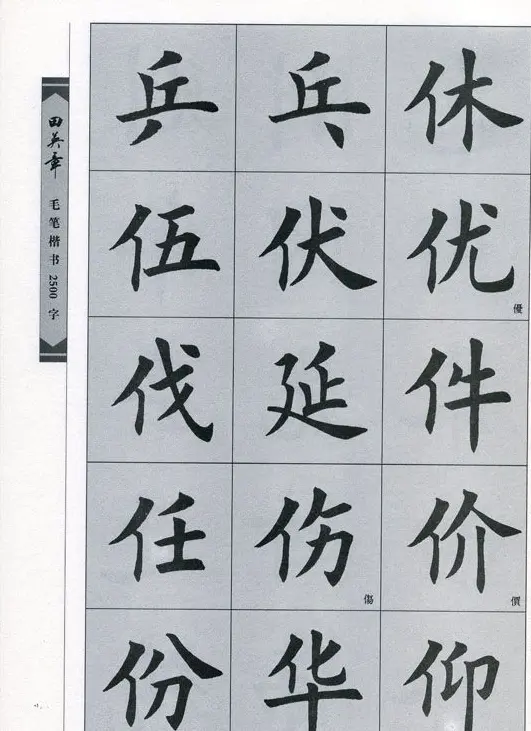 田英章
毛笔楷书2500字
乒乓休
伍伏优
優
伐延件
任伤价
傷 價
份华仰